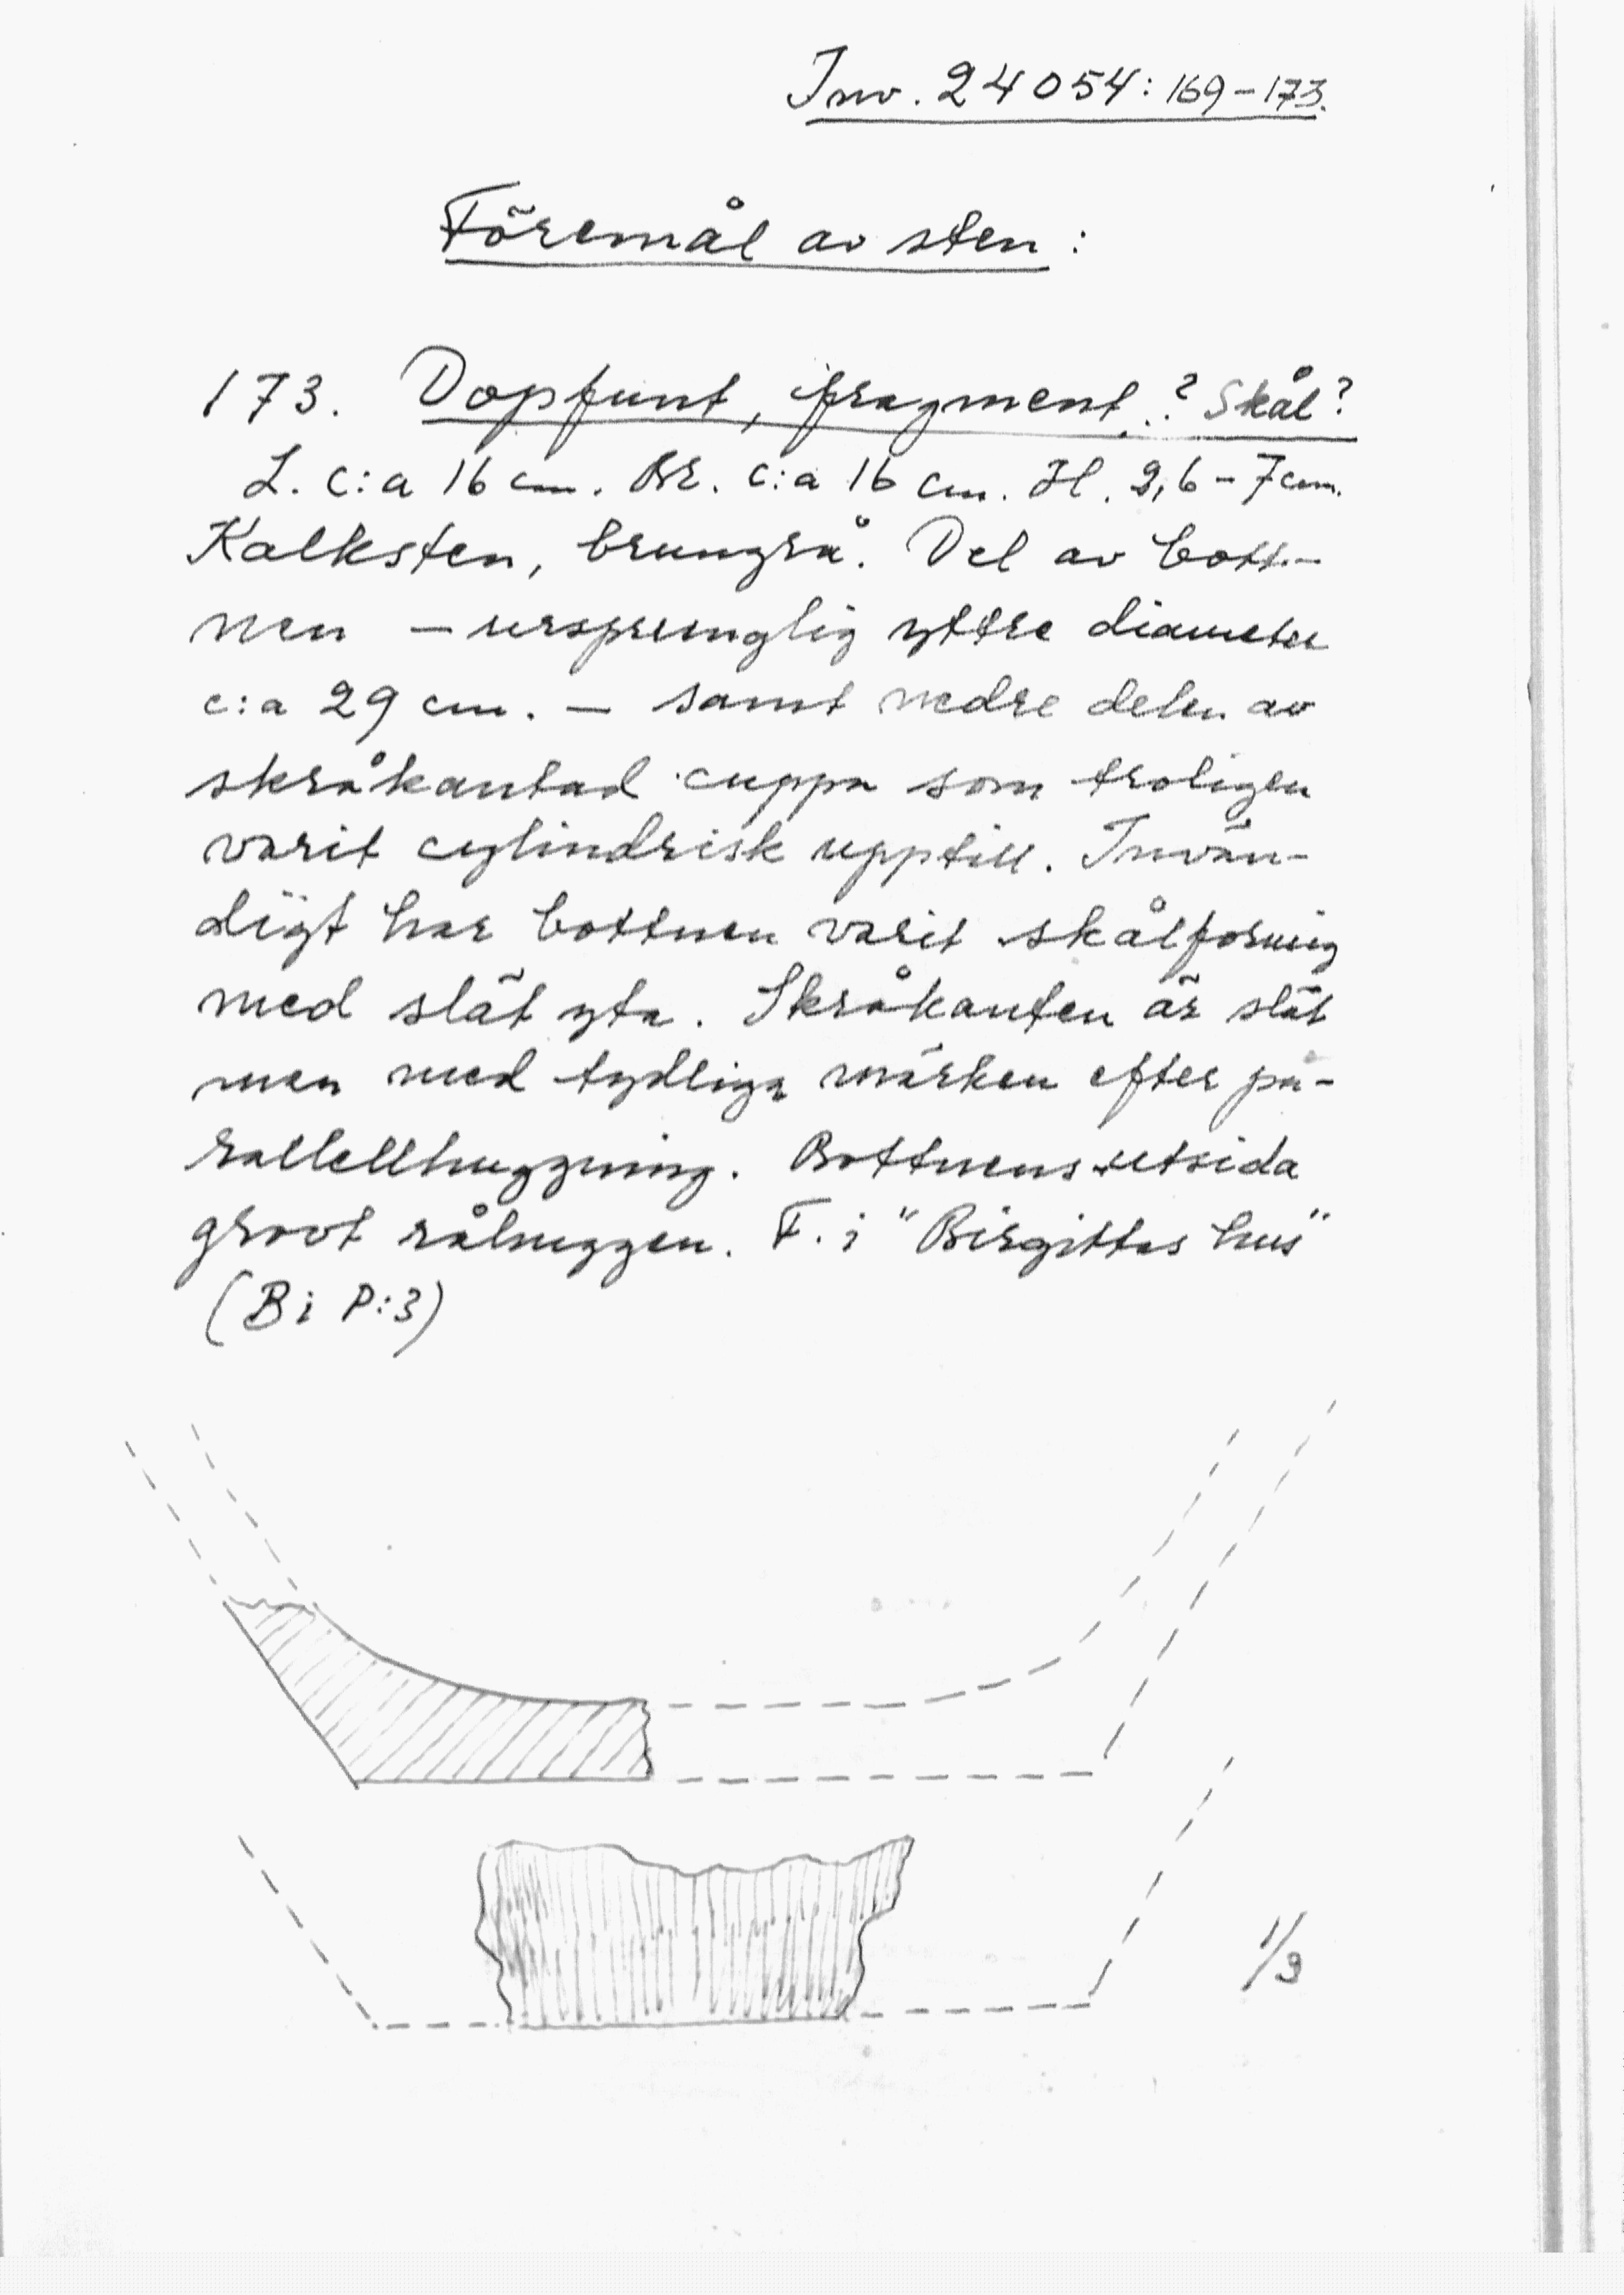 Inv. 24054: 169-173.
Föremål av sten:
173. Dopfunt, fragment.? Skål?
L. c:a 16 cm. Br. c:a 16 cm. H. 2,6-7 cm.
Kalksten, brungrå. Del av bott-
nen – ursprunglig yttre diameter
c:a 29 cm. – samt nedre delen av
skråkantad cuppa som troligen
varit cylindrisk upptill. Invän-
digt har bottnen varit skålformig
med slät yta. Skråkanten är slät
men med tydliga märken efter pa-
rallellhuggning. Bottnens utsida
grovt råhuggen. F. i "Birgittas hus"
(Bi P:3)
1/3